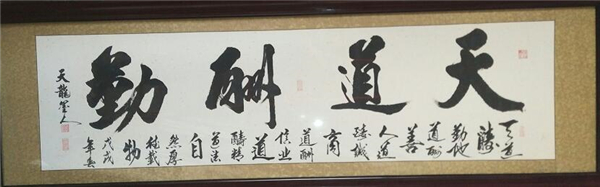 天道酬勤
天道
酬
勤地
道酬
善
人道
酬誠
商
道酬
信业
道
酬精
道法
自
然厚
德載
物
戊戌
年
天龍
人